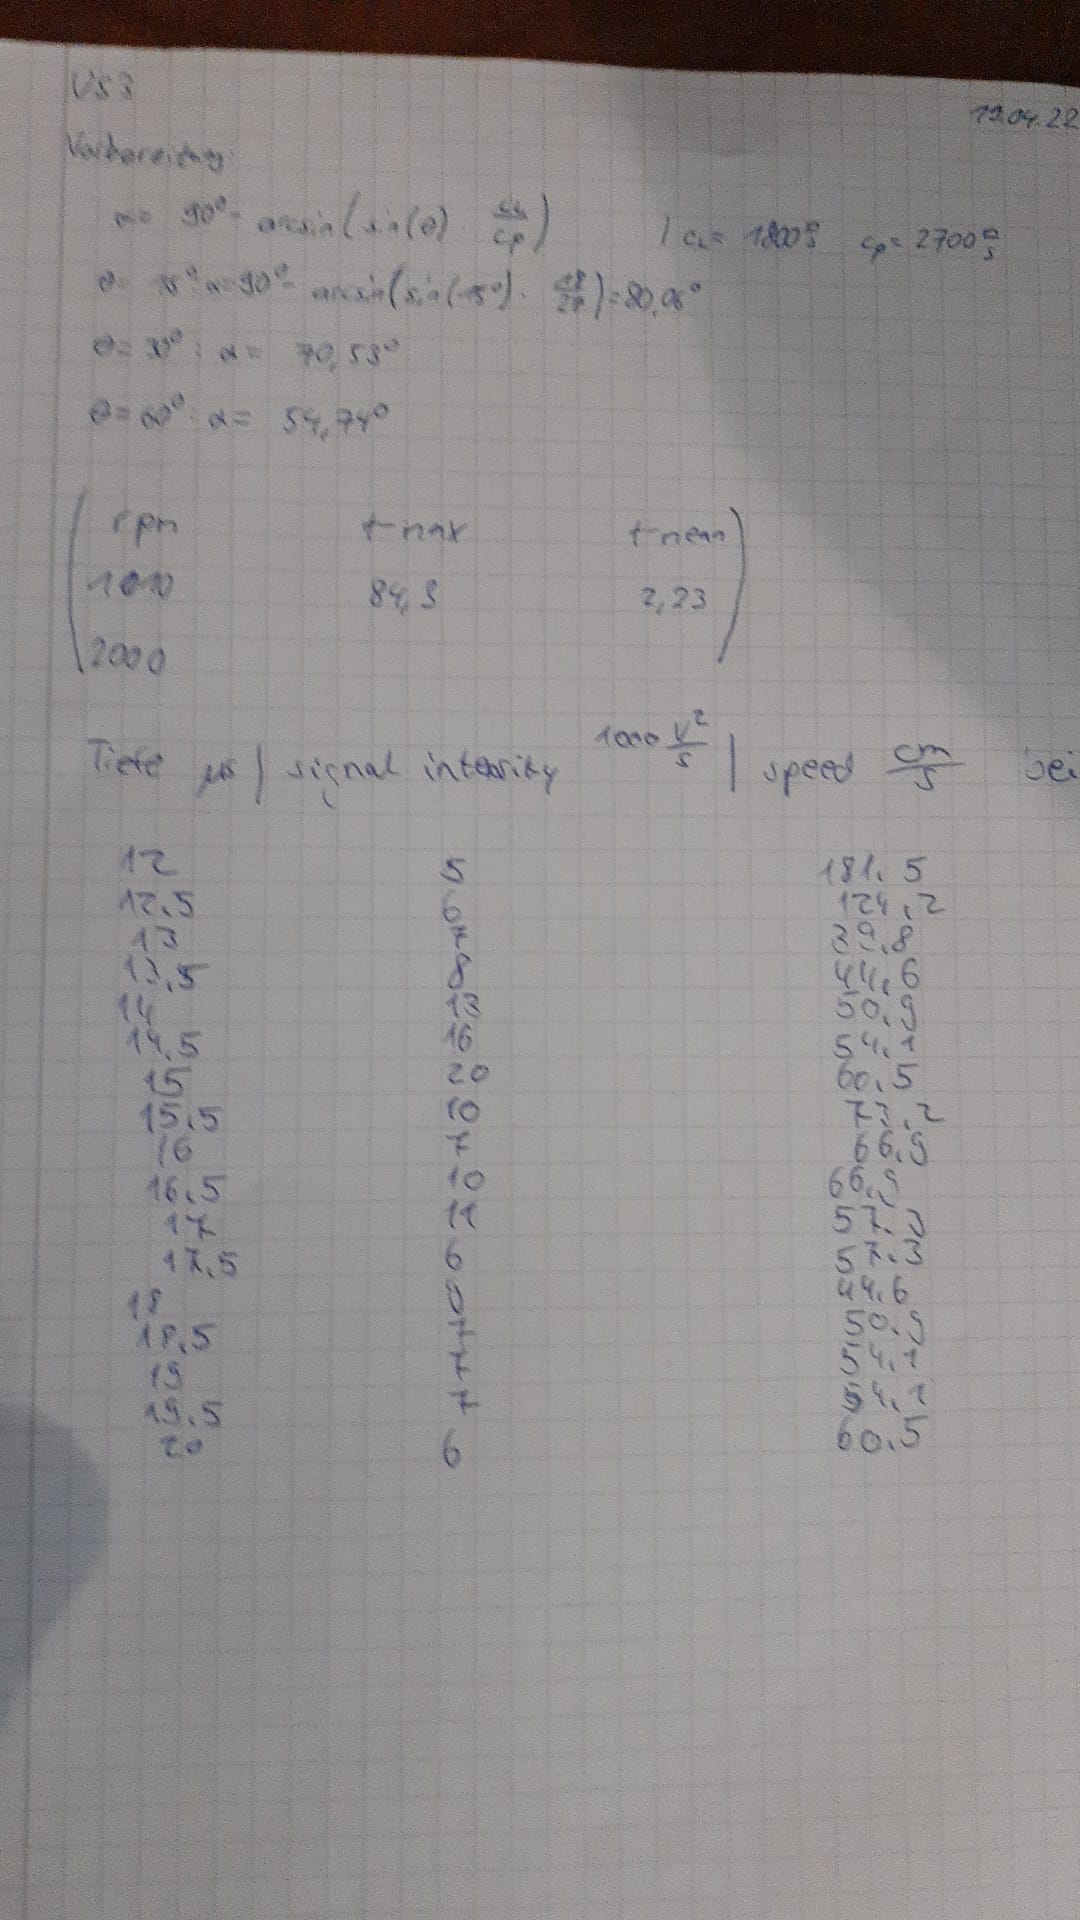 US3
19.04.22
Vorbereitung:
α= 90°- arcsin(sin(θ) · cL/cp) | cL= 1800 m/s cp= 2700 m/s
θ= 15°: α=90°- arcsin(sin(15°) · 18/27)=80,06°
θ= 30°: α= 70,53°
θ= 60°: α= 54,74°
rpm f-max f-mean
1010 84,9 2,23
2000
Tiefe µs | signal intensity 1000 V²/s | speed cm/s bei
12 5 181.5
12.5 6 124.2
13 7 39.8
13.5 8 44.6
14 13 50.9
14.5 16 54.1
15 20 60.5
15.5 10 73.2
16 7 66.9
16.5 10 66.9
17 11 57.3
17.5 6 57.3
18 44.6
18.5 7 50.9
19 7 54.1
19.5 7 54.1
20 6 60.5